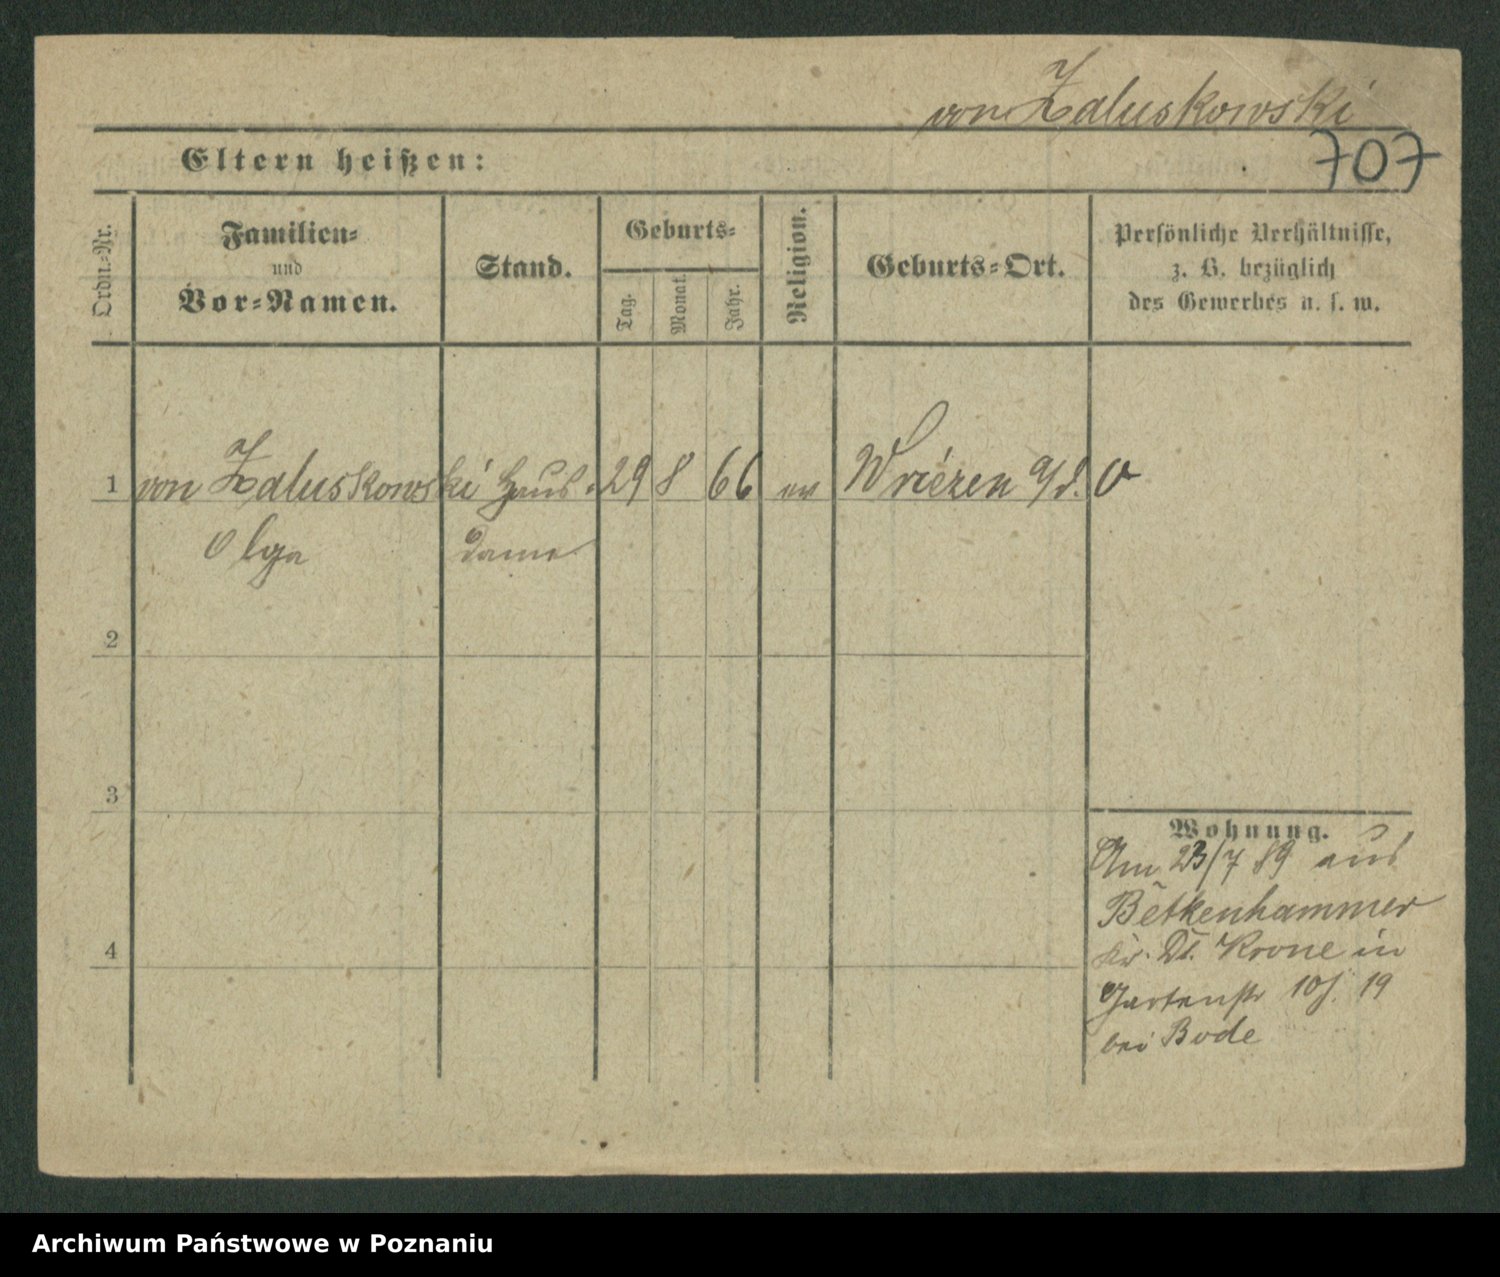 von Zaluskowski
707
Eltern heißen:
Ordn.-Nr.
Familien-
und
Vor-Namen.
Stand.
Geburts-
Tag.
Monat.
Jahr.
Religion.
Geburts-Ort.
Persönliche Verhältnisse,
z. B. bezüglich
des Gewerbes u. s. w.
1 von Zaluskowski Haus- 29 8 66 ev Wriezen a/d. O
Olga dame
2
3
4
Wohnung.
Am 23/7 89 aus
Betkenhammer
Kr. Dt. Krone in
Gartenstr 19
bei Bode
Archiwum Państwowe w Poznaniu